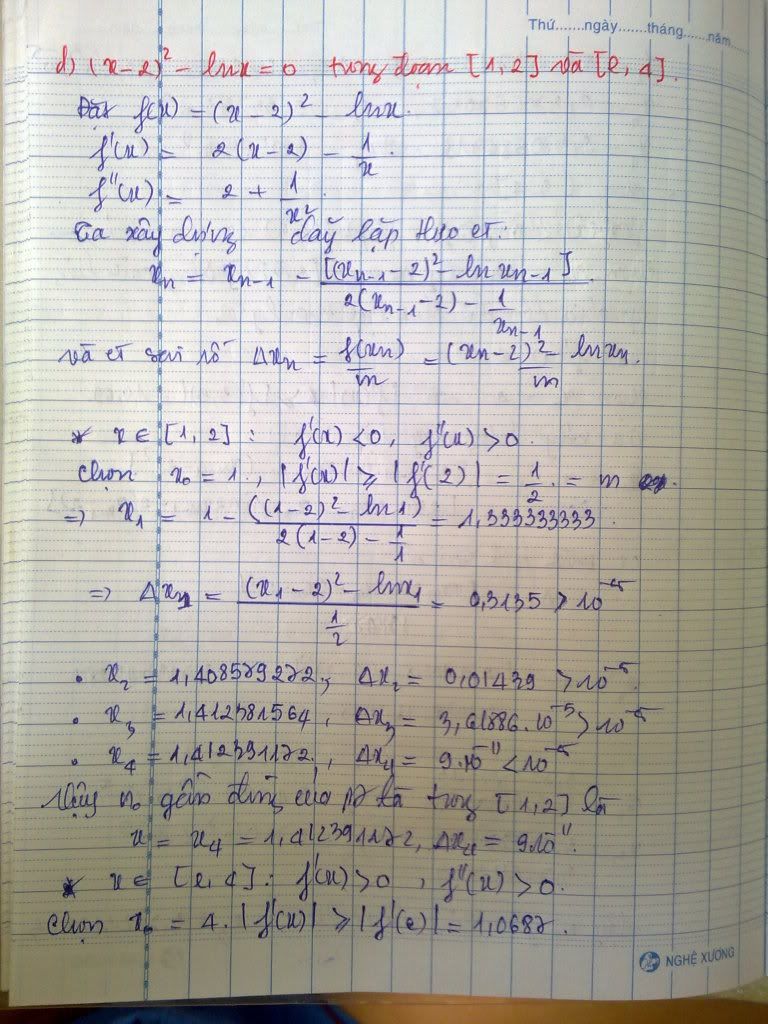 Thứ.......ngày.......tháng.......năm.......
d) (x-2)² - lnx = 0 trong đoạn [1,2] và [e,4].
Đặt f(x) = (x-2)² - lnx.
f'(x) = 2(x-2) - 1/x.
f''(x) = 2 + 1/x².
Ta xây dựng dãy lặp theo ct:
xₙ = xₙ₋₁ - [(xₙ₋₁-2)² - ln xₙ₋₁] / (2(xₙ₋₁-2) - 1/xₙ₋₁).
và ct sai số Δxₙ = f(xₙ)/m = ((xₙ-2)² - lnxₙ)/m.
* x ∈ [1,2] : f'(x) <0, f''(x) >0.
Chọn x₀ = 1., |f'(x)| ⩾ |f'(2)| = 1/2 = m
=> x₁ = 1 - ((1-2)² - ln1) / (2(1-2) - 1/1) = 1,333333333.
=> Δx₁ = ((x₁-2)² - lnx₁) / (1/2) = 0,3135 > 10⁻⁵
• x₂ = 1,408579272, Δx₂ = 0,01439 > 10⁻⁵.
• x₃ = 1,412381564, Δx₃ = 3,61886.10⁻⁵ > 10⁻⁵
• x₄ = 1,412391172., Δx₄ = 9.10⁻¹¹ < 10⁻⁵
Vậy n₀ gần đúng của pt là trong [1,2] là
x = x₄ = 1,412391172, Δx₄ = 9.10⁻¹¹.
* x ∈ [e,4] : f'(x) >0, f''(x) >0.
Chọn x₀ = 4. |f'(x)| ⩾ |f'(e)| = 1,0687.
NGHỆ XƯƠNG